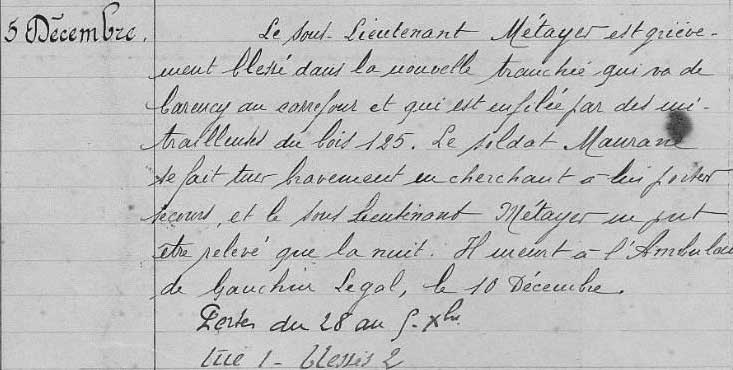 5 Décembre. Le sous-Lieutenant Métayer est griève-
ment blessé dans la nouvelle tranchée qui va de
Carency au carrefour et qui est enfilée par des mi-
trailleuses du bois 125. Le soldat Maurane
se fait tuer bravement en cherchant à lui porter
secours, et le sous Lieutenant Métayer ne put
être relevé que la nuit. Il meurt à l'Ambulan
de Gauchin Legal, le 10 Décembre.
Pertes du 28 au 5-Xbre
tué 1 - blessés 2